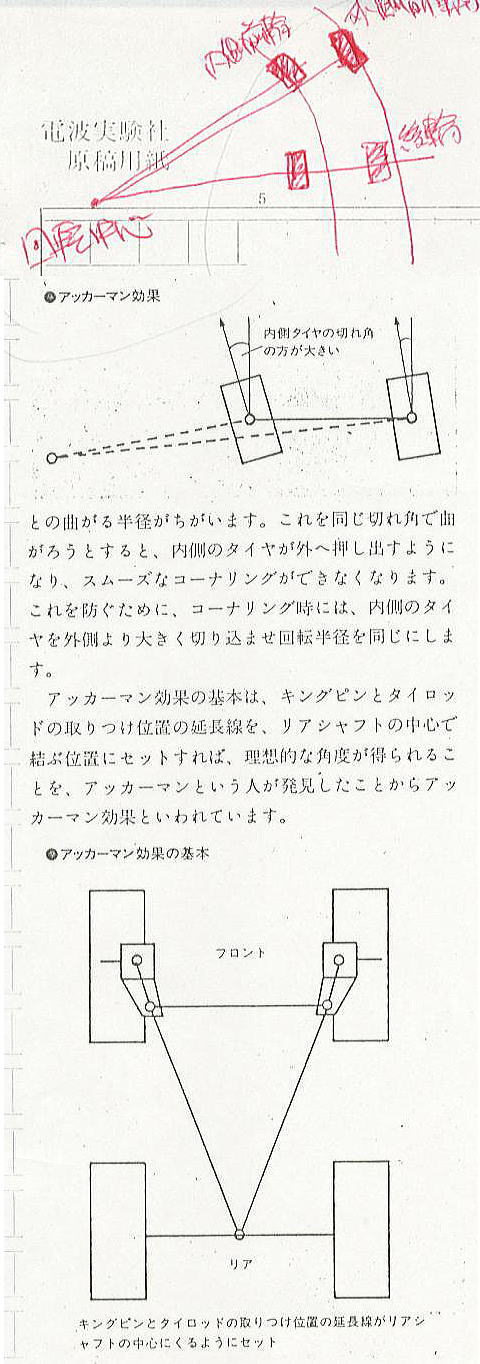 内側前輪
外側前輪
電波実験社
原稿用紙
後輪
5
回転中心
アッカーマン効果
内側タイヤの切れ角
の方が大きい
との曲がる半径がちがいます。これを同じ切れ角で曲
がろうとすると、内側のタイヤが外へ押し出すように
なり、スムーズなコーナリングができなくなります。
これを防ぐために、コーナリング時には、内側のタイ
ヤを外側より大きく切り込ませ回転半径を同じにしま
す。
アッカーマン効果の基本は、キングピンとタイロッ
ドの取りつけ位置の延長線を、リアシャフトの中心で
結ぶ位置にセットすれば、理想的な角度が得られるこ
とを、アッカーマンという人が発見したことからアッ
カーマン効果といわれています。
アッカーマン効果の基本
フロント
リア
キングピンとタイロッドの取りつけ位置の延長線がリアシ
ャフトの中心にくるようにセット